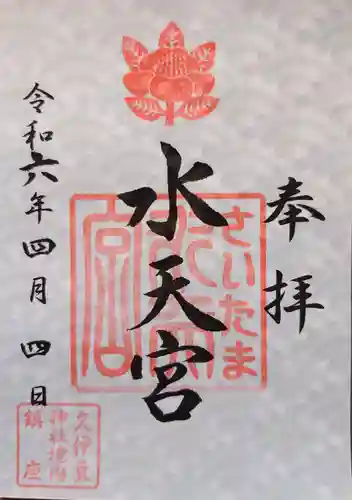 奉拝
水天宮
さいたま
水天宮
令和六年四月四日
久伊豆
神社境内
鎮座